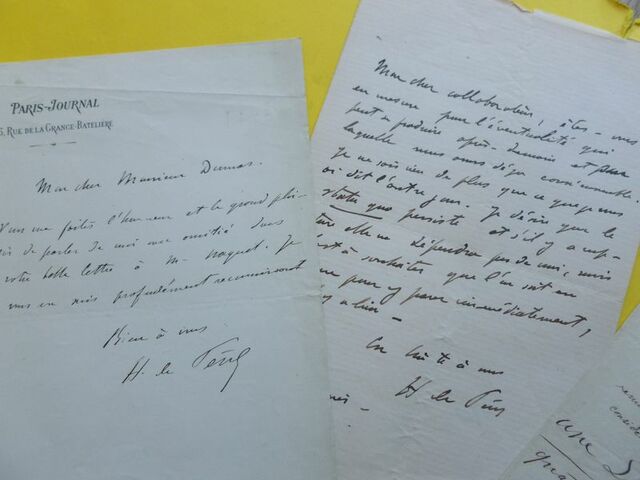 PARIS-JOURNAL
RUE DE LA GRANGE-BATELIÈRE
Mon cher Monsieur Dumas.
Vous me faites l'honneur et le grand plai-
sir de parler de moi avec amitié dans
votre belle lettre à Mr Naquet. Je
vous en suis profondément reconnaissant
Bien à vous
H. de Pène
Mon cher collaborateur, êtes-vous
en mesure pour l'éventualité qui
peut se produire après-demain et pour
laquelle nous avons déjà
Je ne sais rien de plus que ce que je vous
ai dit l'autre jour. Je désire que le
statu quo persiste et s'il y a
elle ne dépendra pas de moi, mais
est à souhaiter que l'on soit en
pour y parer immédiatement,
a lieu -
En hâte à vous
H de Pène